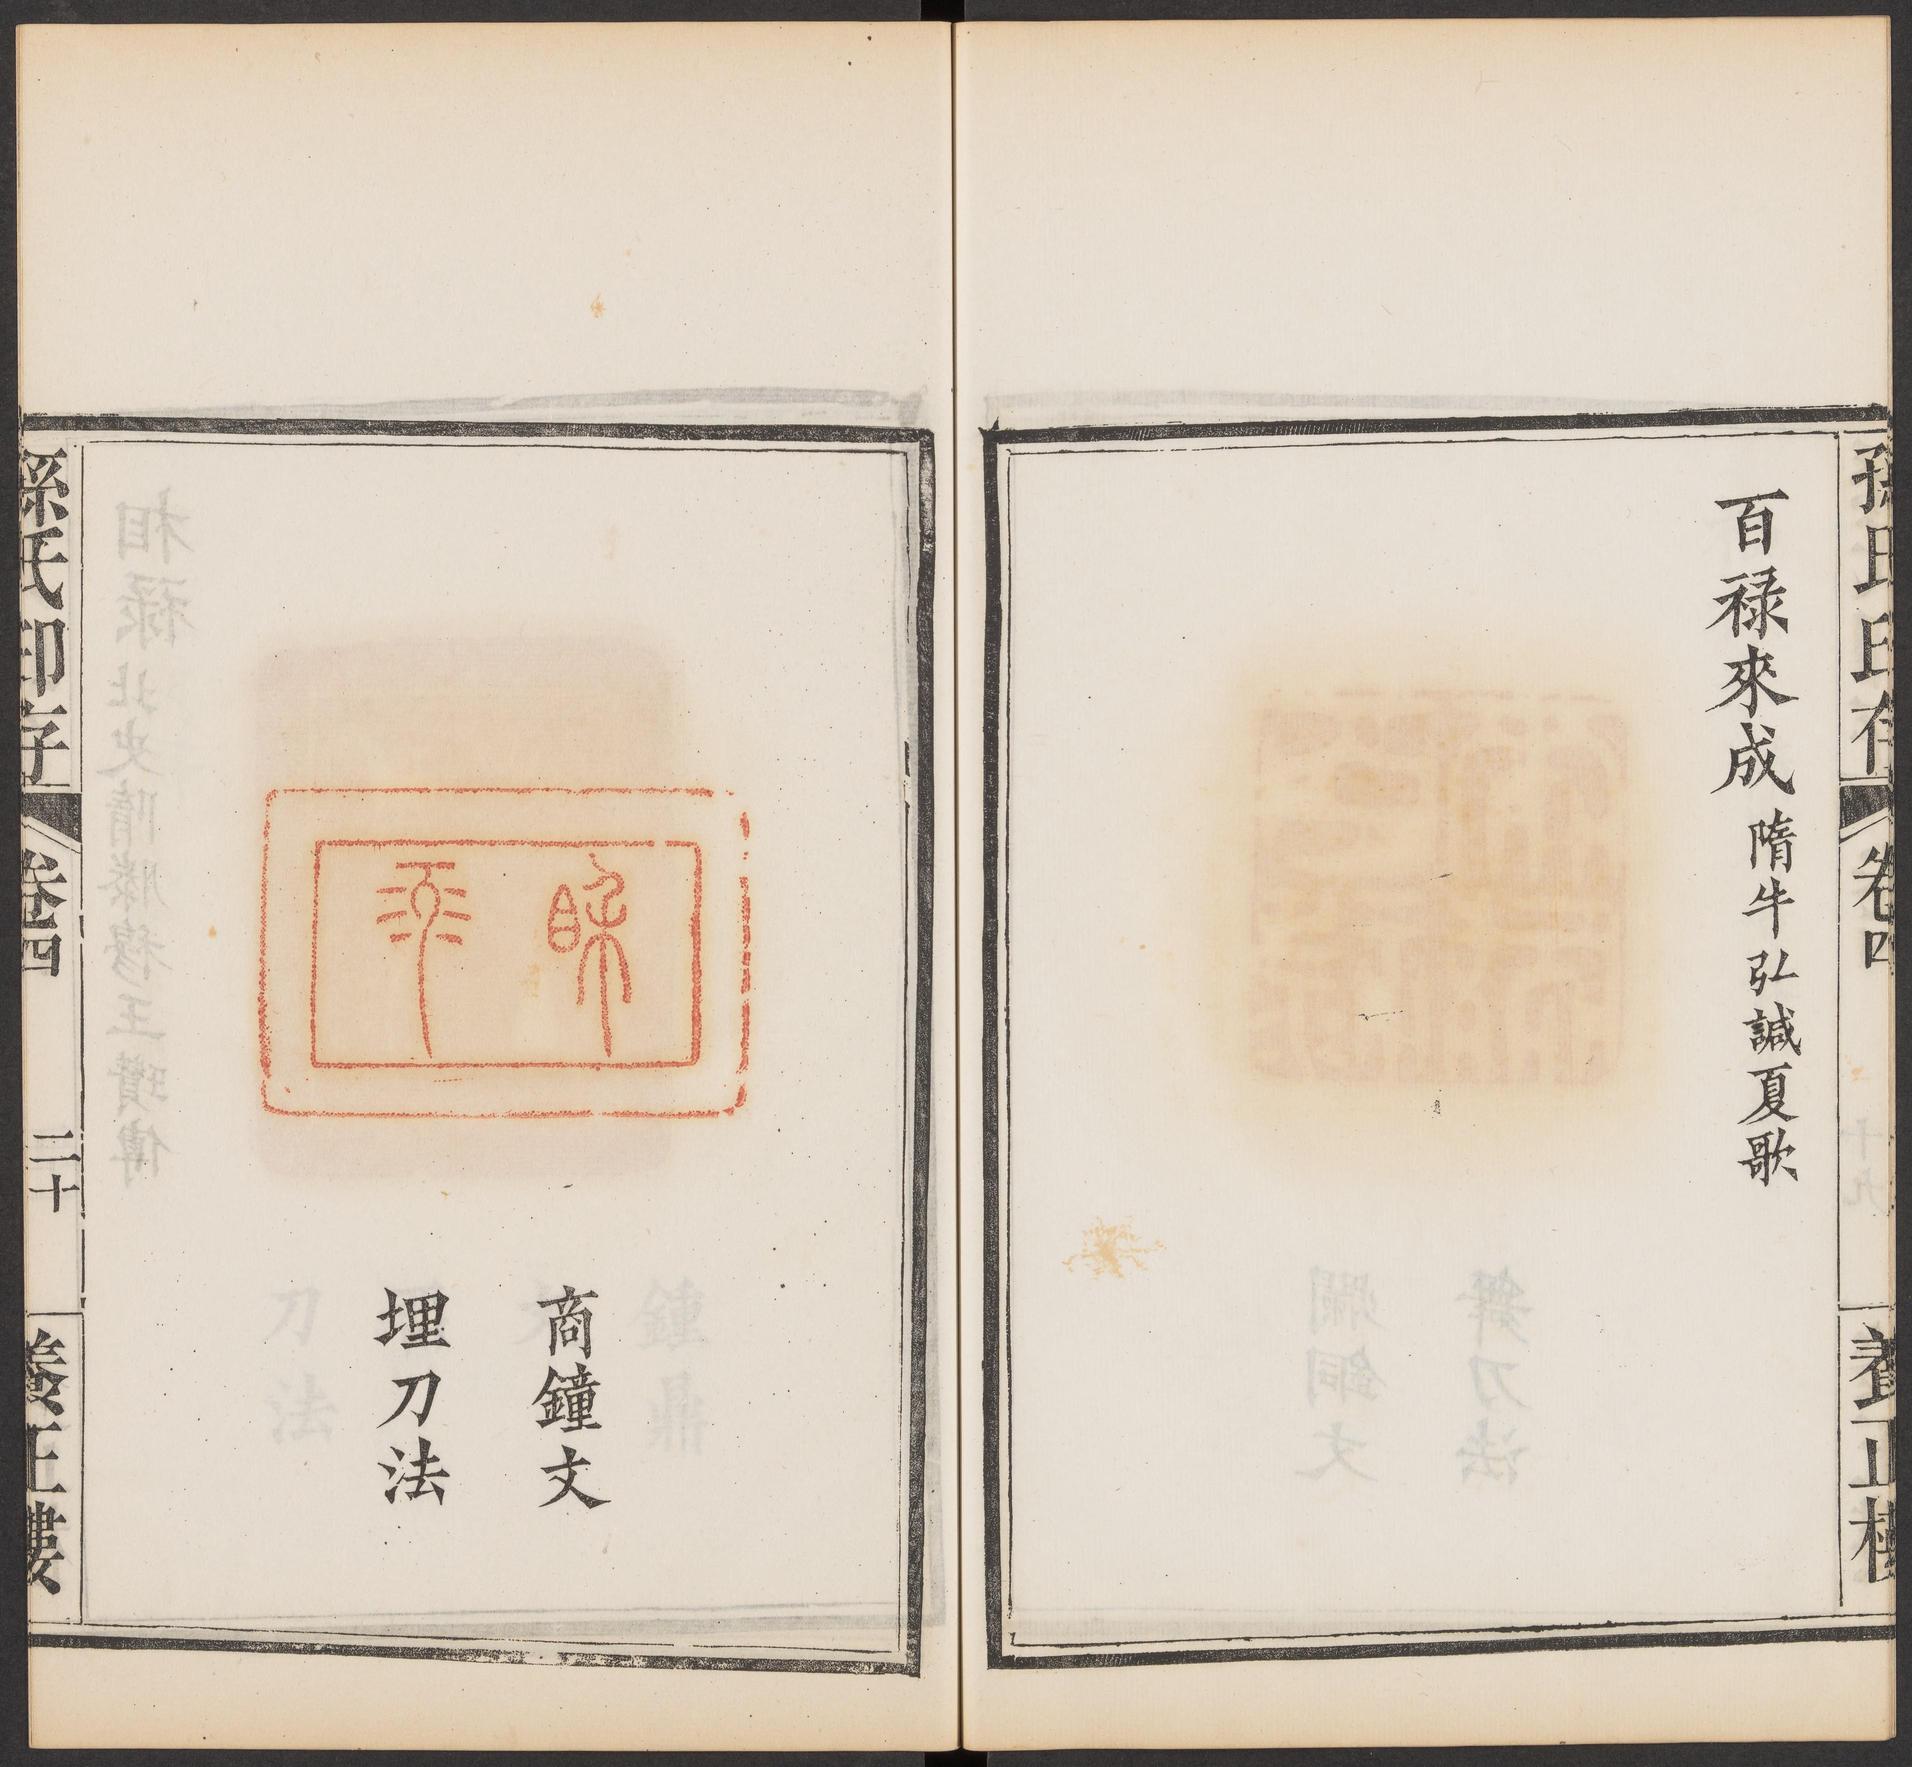 孫氏印存
卷四
養正樓
百禄來成 隋牛弘諴夏歌
商鐘文
埋刀法
孫氏印存
卷四
二十
養正樓